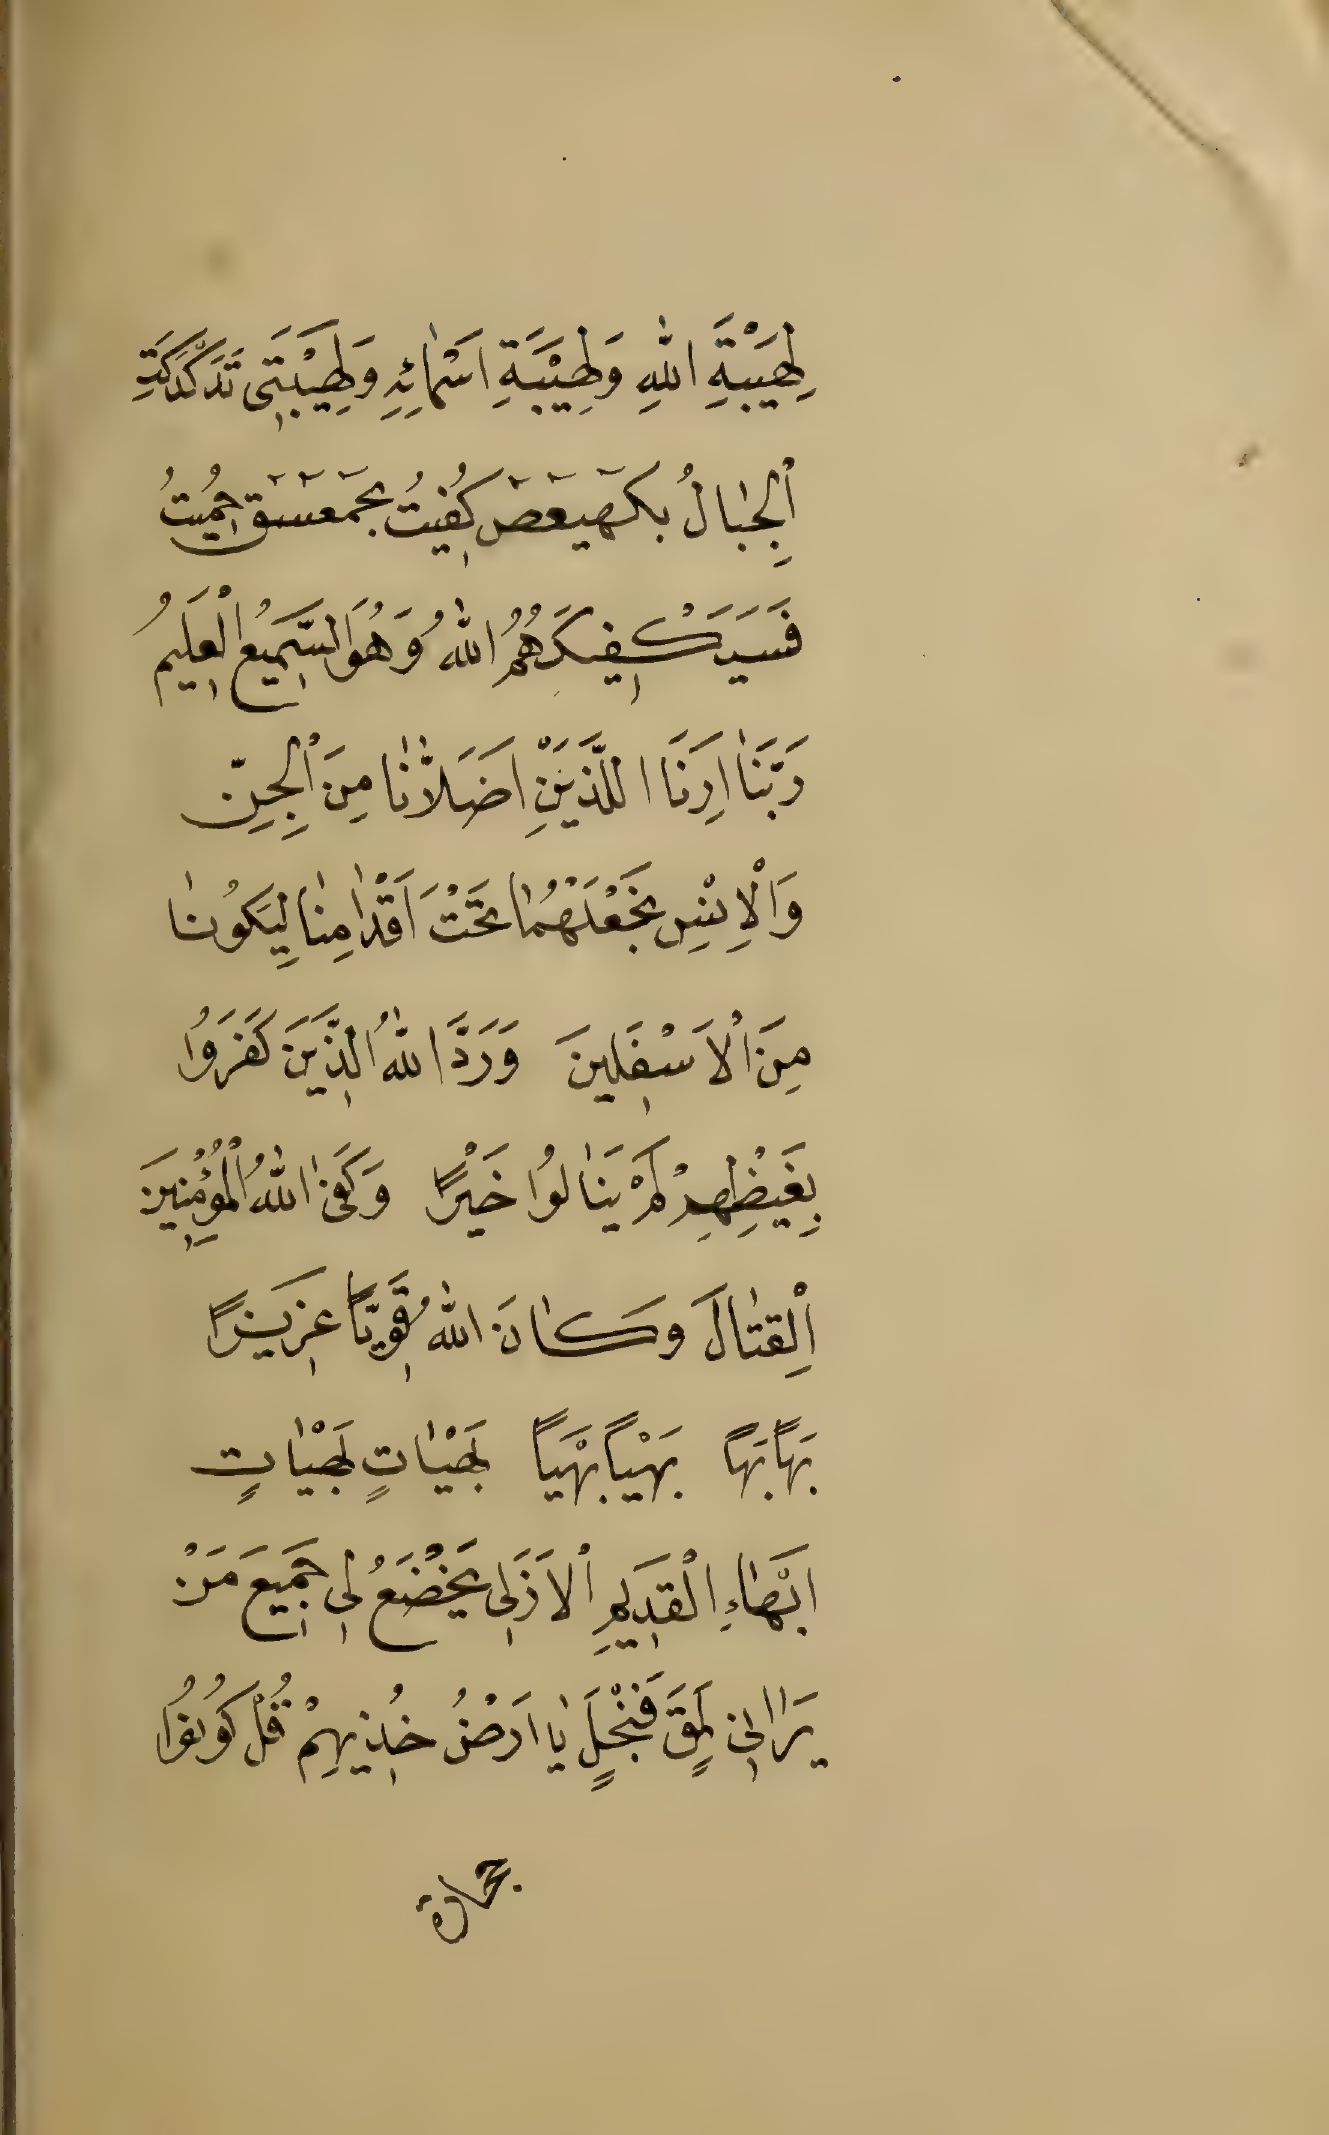 لِهَيْبَةِ اللهِ وَلِهَيْبَةِ اَسْمٰائِهِ وَلِهَيْبَتِي تَدَكْدَكَتِ
اْلجِبٰالُ بكهيعص كُفيتُ بحمعسق حُميتُ
فَسَيَكْفِيكَهُمُ اللهُ وَهُوَ السَّمِيعُ الْعَلِيمُ
رَبَّنٰا اَرِنَا اللَّذَيْنِ اَضَلَّانٰا مِنَ الْجِنِّ
وَالْاِنْسِ نَجْعَلْهُمٰا تَحْتَ اَقْدٰامِنٰا لِيَكُونٰا
مِنَ الْاَسْفَلِينَ وَرَدَّ اللهُ الَّذِينَ كَفَرُوا
بِغَيْظِهِمْ لَمْ يَنٰالُوا خَيْرًا وَكَفَى اللهُ الْمُؤْمِنِينَ
الْقِتٰالَ وَكٰانَ اللهُ قَوِيًّا عَزِيزًا
بَهًا بَهًا بَهْيًا بَهْيًا بَهَيْاتٍ بَهَيْاتٍ
الْقَدِيمِ الْاَزَلِي يَخْضَعُ لِي جَمِيعَ مَنْ
يَرٰانِي يٰا اَرْضُ خُذِيهِمْ قُلْ كُونُوا
حجارة